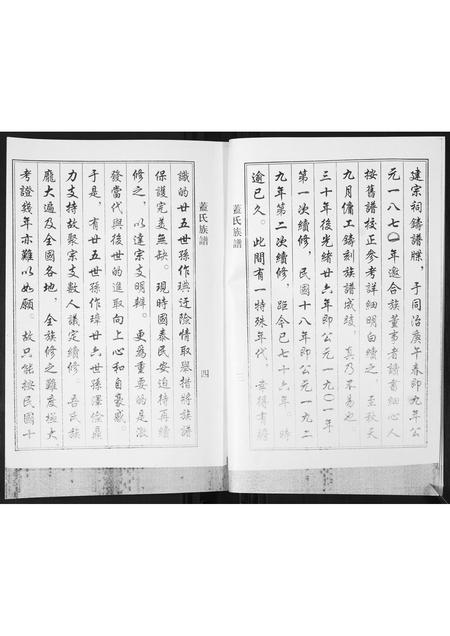 建宗祠鑄譜牒，于同治庚午春即九年公
元一八七〇年邀合族董事者讀書細心人
按舊譜校正參考詳細明白續之。至秋天
九月傭工鑄刻族譜成竣，真乃不易也。
三十年後光緒廿六年即公元一九〇一年
第一次續修，民國十八年即公元一九二
九年第二次續修，距今已七十六年，時
逾已久。此間有一特殊年代，幸得有膽
蓋氏族譜
三
蓋氏族譜
四
識的廿五世孫作璵迂險情取舉措將族譜
保護完美無缺。現時國泰民安迫待再續
修之，以達宗支明辨。更爲重要的是激
發當代與後世的進取向上心和自豪感。
于是，有廿五世孫作璋廿六世孫澤儉鼎
力支持故聚宗支數人議定續修。吾氏族
龐大遍及全國各地，全族修之難度極大
考證幾年亦難以如願。故只能按民國十